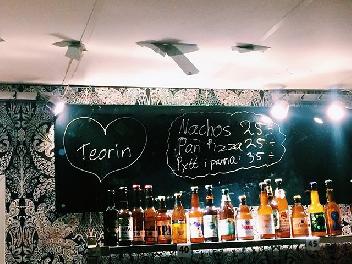 Teorin
Nachos 25:-
Pan Pizza 25:-
Pytt i panna: 35:-
40
45